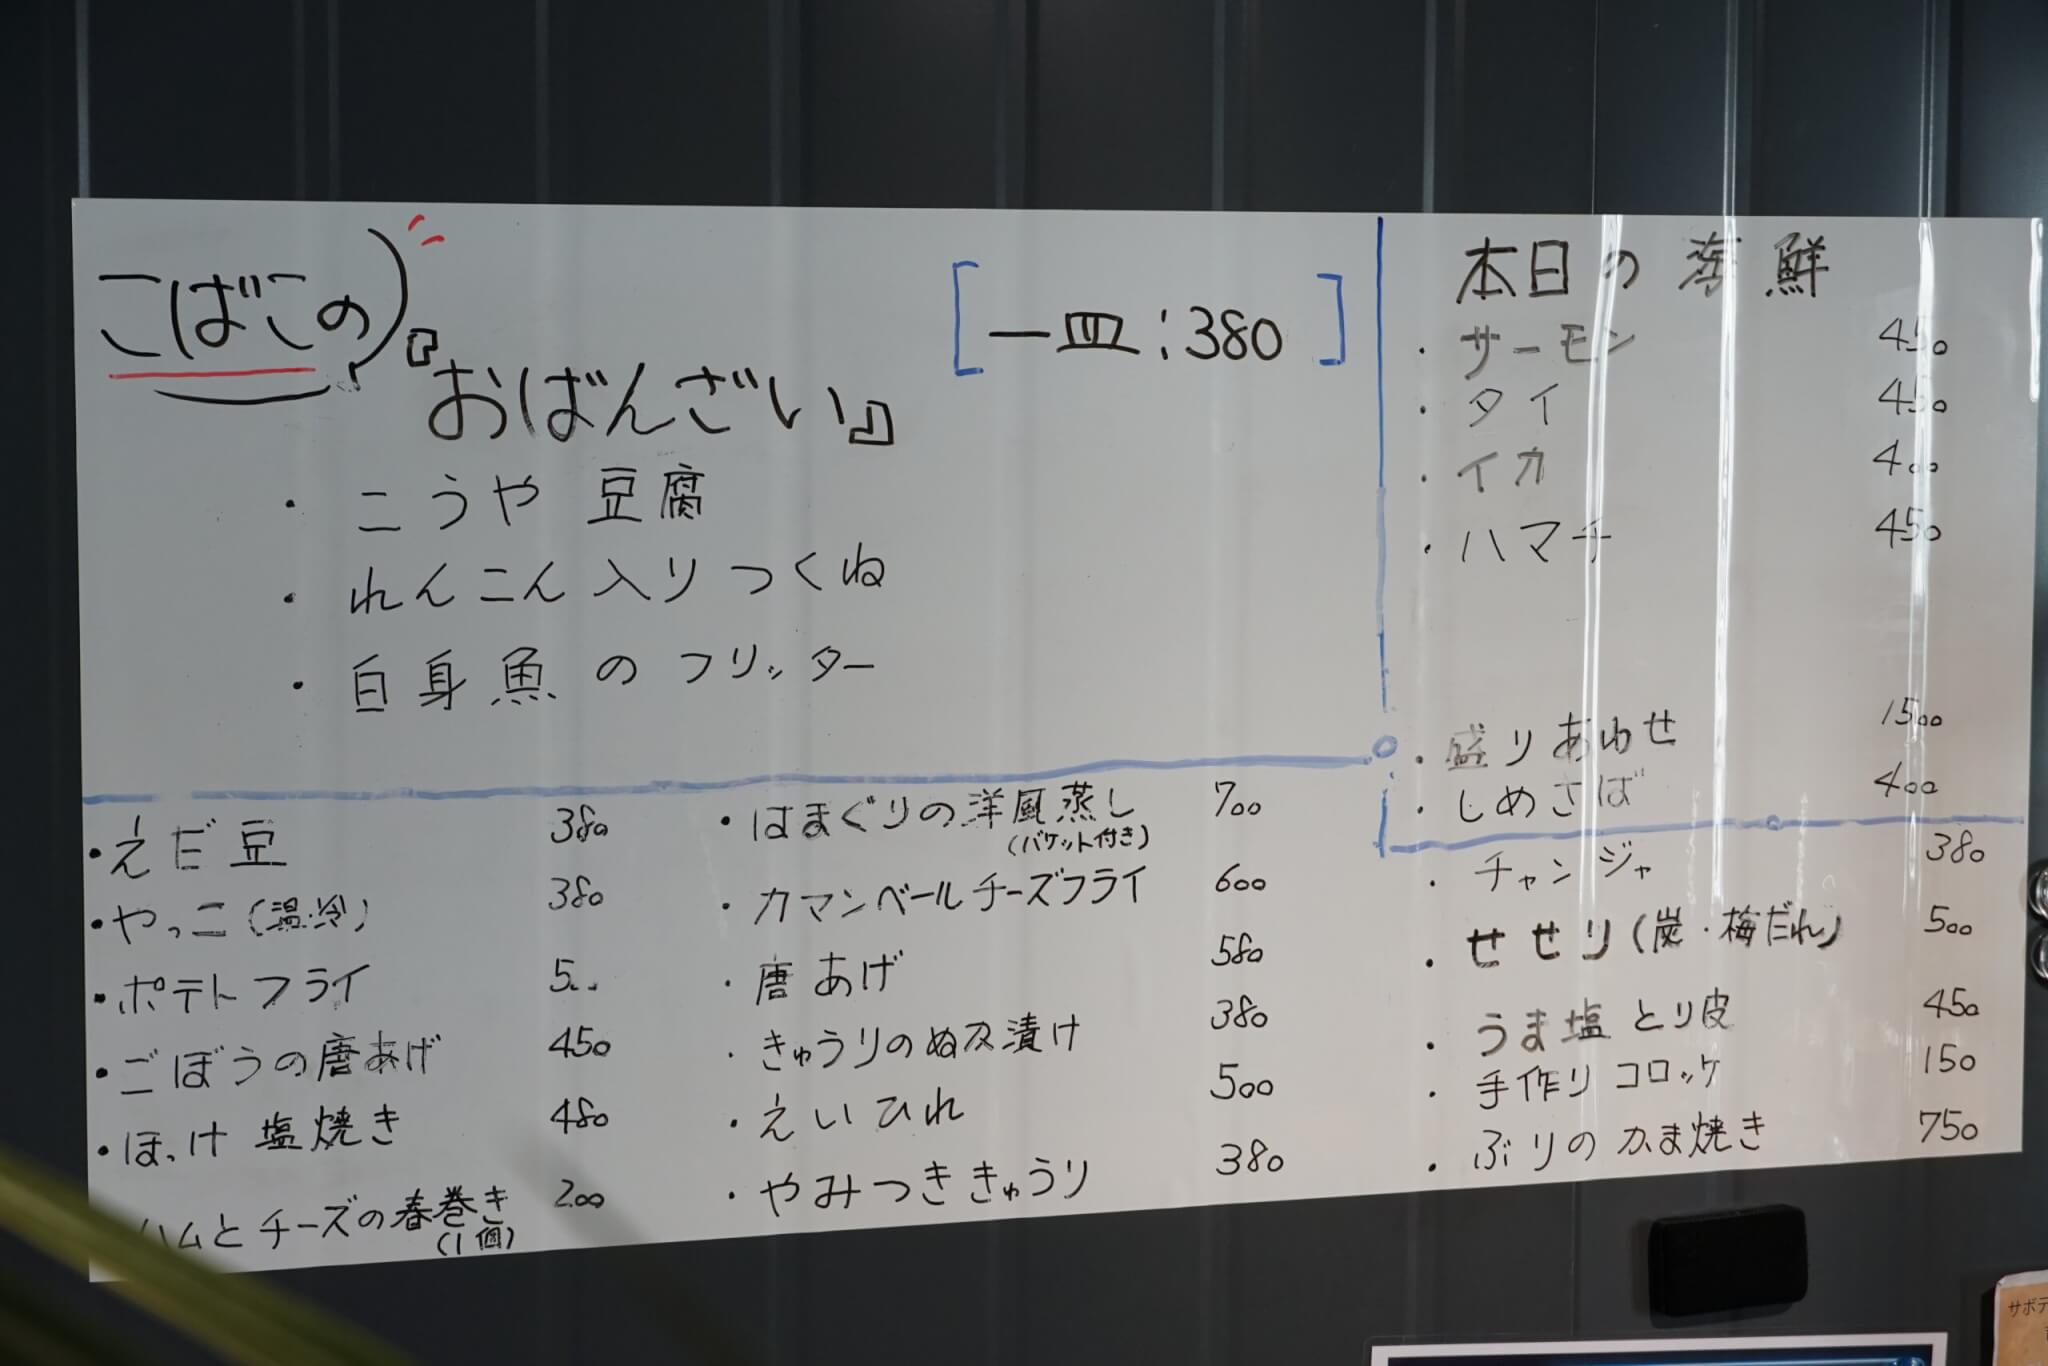 こばこの
『おばんざい』
[一皿:380]
・こうや豆腐
・れんこん入りつくね
・白身魚のフリッター
本日の海鮮
・サーモン 450
・タイ 450
・イカ 400
・ハマチ 450
・盛りあわせ 1500
・しめさば 400
・えだ豆 380
・やっこ(温・冷) 380
・ポテトフライ
・ごぼうの唐あげ 450
・ほっけ塩焼き 480
ハムとチーズの春巻き 200
(1個)
・はまぐりの洋風蒸し 700
(バケット付き)
・カマンベールチーズフライ 600
・唐あげ 580
・きゅうりのぬか漬け 380
・えいひれ 500
・やみつききゅうり 380
・チャンジャ 380
・せせり(炭・梅だれ) 500
・うま塩とり皮 450
・手作りコロッケ 150
・ぶりのかま焼き 750
サボテ